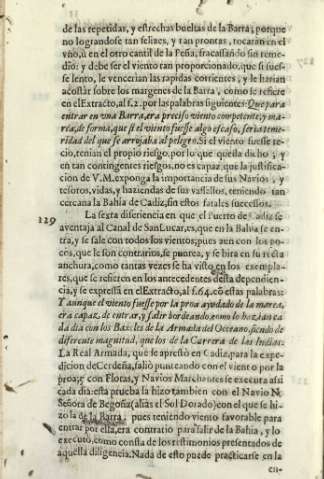 de las repetidas, y estrechas bueltas de la Barra; porque
no lograndose tan felizes, y tan prontas, tocarán en el
vno, ù en el otro cantil de la Peña, fracasando sin reme-
dio: y debe ser el viento tan proporcionado, que si fues-
se lento, le vencerian las rapidas corrientes, y le harian
acostar sobre los margenes de la Barra, como se refiere
en el Extracto, al f. 2. por las palabras siguientes: Que para
entrar en una Barra, era preciso viento competente, y ma-
rèa, de forma, que si el viento fuesse algo escaso, seria teme-
ridad del que se arrojaba al peligro. Si el viento fuesse re-
cio, tenian el propio riesgo, por lo que queda dicho; y
en tan contingentes riesgos, no es capaz, que la justifica-
cion de V.M. exponga la importancia de sus Navios, y
tesoros, vidas, y haziendas de sus vassallos, teniendo tan
cercana la Bahia de Cadiz, sin estos fatales successos.
129 La sexta diferiencia en que el Puerto de Cadiz se
aventaja al Canal de San Lucar, es, que en la Bahia se en-
tra, y se sale con todos los vientos; pues aun con los po-
cos, que le son contrarios, se puntea, y se bira en su recta
anchura, como tantas vezes se ha visto en los exempla-
res, que se refieren en los antecedentes desta dependien-
cia, y se expressa en el Extracto, al f. 64. cō estas palabras:
Y aunque el viento fuesse por la proa ayudado de la marea,
era capaz, de entrar, y salir bordeando, como lo hazian ca-
da dia con los Baxeles de la Armada del Occeano, siendo de
diferente magnitud, que los de la Carrera de las Indias.
La Real Armada, que se aprestò en Cadiz, para la expe-
dicion de Cerdeña, saliò punteando con el viento por la
proa; y con Flotas, y Navios Marchantes se executa assi
cada dia: esta prueba la hizo tambien con el Navio N.
Señora de Begoña, (alias el Sol Dorado) con el que se hi-
zo la de la Barra, pues teniendo viento favorable para
entrar por ella, era contrario para salir de la Bahia, y lo
executò, como consta de los testimonios presentados de
aquesta diligencia. Nada de esto puede practicarse en la